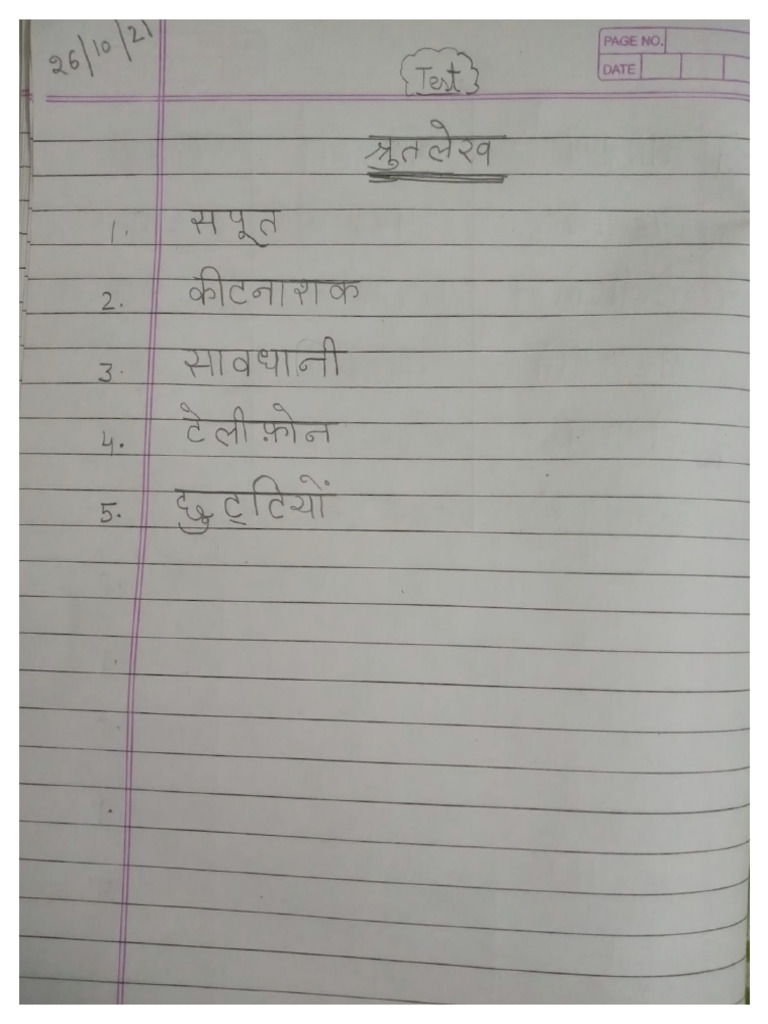 26/10/21
PAGE NO.
DATE
Test
श्रुतलेख
1. सपूत
2. कीटनाशक
3. सावधानी
4. टेलीफ़ोन
5. छुट्टियों